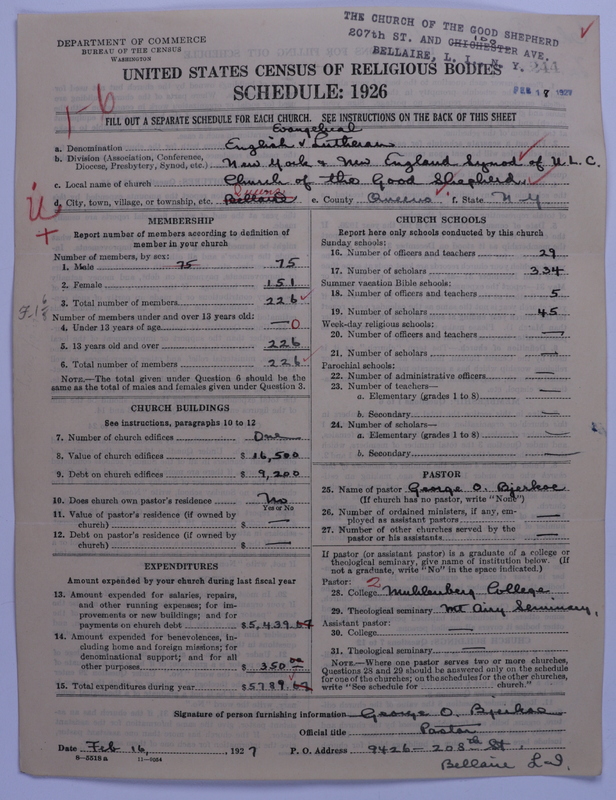 THE CHURCH OF THE GOOD SHEPHERD
207th ST. AND CHICHESTER AVE.
BELLAIRE, L. I., N. Y.
244
DEPARTMENT OF COMMERCE
BUREAU OF THE CENSUS
WASHINGTON
UNITED STATES CENSUS OF RELIGIOUS BODIES
SCHEDULE: 1926
FEB 18 1927
1-6
FILL OUT A SEPARATE SCHEDULE FOR EACH CHURCH. SEE INSTRUCTIONS ON THE BACK OF THIS SHEET
Evangelical
a. Denomination English Lutheran
b. Division (Association, Conference, Diocese, Presbytery, Synod, etc.) New York & New England Synod of U.L.C.
c. Local name of church Church of the Good Shepherd
Queens
d. City, town, village, or township, etc. Bellaire e. County Queens f. State N-Y
MEMBERSHIP
Report number of members according to definition of
member in your church
Number of members, by sex:
1. Male 75 75
2. Female 151
3. Total number of members 226
Number of members under and over 13 years old:
4. Under 13 years of age — 0
5. 13 years old and over 226
6. Total number of members 226
NOTE.—The total given under Question 6 should be the
same as the total of males and females given under Question 3.
CHURCH BUILDINGS
See instructions, paragraphs 10 to 12
7. Number of church edifices One
8. Value of church edifices $ 16,500
9. Debt on church edifices $ 9,200
10. Does church own pastor's residence No
Yes or No
11. Value of pastor's residence (if owned by
church) $ —
12. Debt on pastor's residence (if owned by
church) $ —
EXPENDITURES
Amount expended by your church during last fiscal year
13. Amount expended for salaries, repairs,
and other running expenses; for im-
provements or new buildings; and for
payments on church debt $ 5,439.
14. Amount expended for benevolences, in-
cluding home and foreign missions; for
denominational support; and for all
other purposes $ 350.00
15. Total expenditures during year $ 5789.
CHURCH SCHOOLS
Report here only schools conducted by this church
Sunday schools:
16. Number of officers and teachers 29
17. Number of scholars 334
Summer vacation Bible schools:
18. Number of officers and teachers 5
19. Number of scholars 45
Week-day religious schools:
20. Number of officers and teachers —
21. Number of scholars —
Parochial schools:
22. Number of administrative officers —
23. Number of teachers—
a. Elementary (grades 1 to 8) —
b. Secondary —
24. Number of scholars—
a. Elementary (grades 1 to 8) —
b. Secondary —
PASTOR
25. Name of pastor George O. Bjerkoe
(If church has no pastor, write "None")
26. Number of ordained ministers, if any, em-
ployed as assistant pastors —
27. Number of other churches served by the
pastor or his assistants —
If pastor (or assistant pastor) is a graduate of a college or
theological seminary, give name of institution below. (If
not a graduate, write "No" in the space indicated.)
Pastor: 2
28. College Muhlenberg College
29. Theological seminary Mt Airy Seminary,
Assistant pastor:
30. College —
31. Theological seminary —
NOTE.—Where one pastor serves two or more churches,
Questions 28 and 29 should be answered only on the schedule
for one of the churches; on the schedules for the other churches,
write "See schedule for ........ church."
Signature of person furnishing information George O. Bjerkoe
Official title Pastor
Date Feb 16, 1927 P. O. Address 9426-208th St,
8—5518a 11—9084
Bellaire L-I.